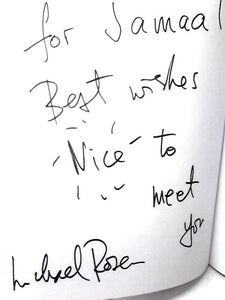 for Jamaal
Best wishes
Nice to
meet
you
Michael Rosen